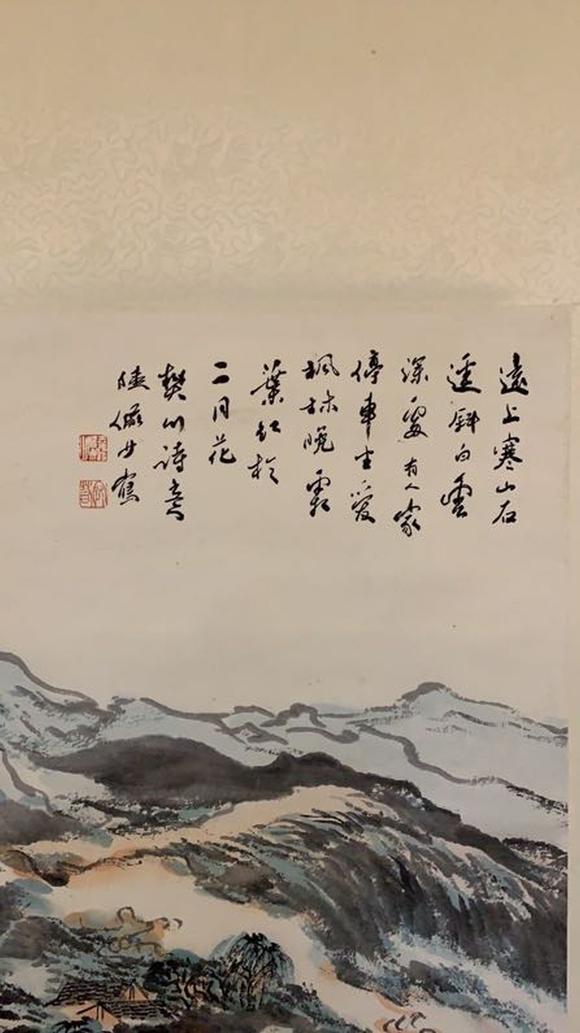 遠上寒山石
逕斜白雲
深處有人家
停車坐愛
楓林晚霜
葉紅於
二月花
樊川詩意
陸儼少寫